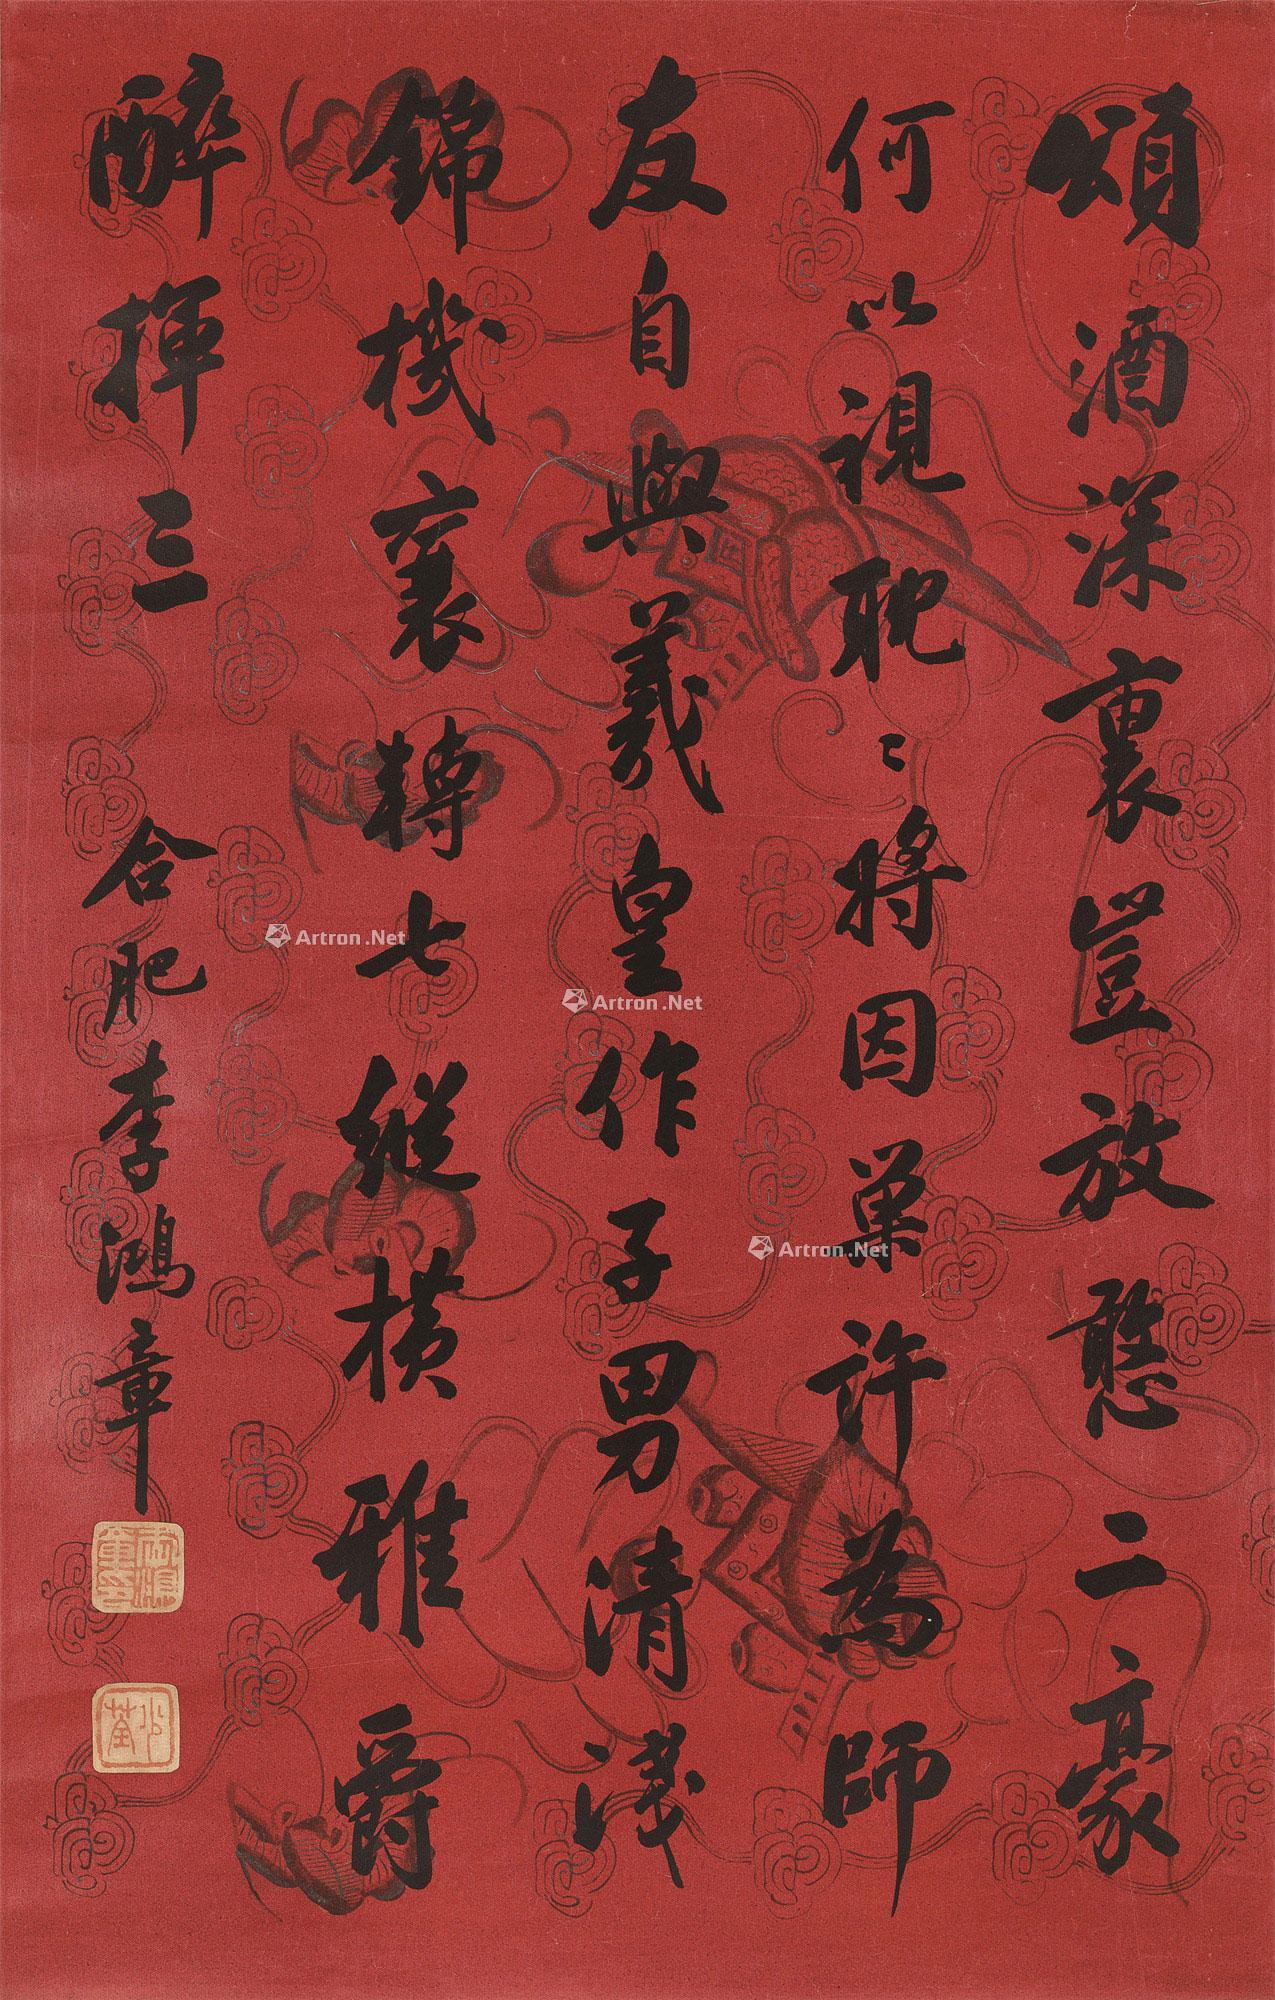 頌酒深裏豈放憨二豪
何以視耽〻將因巢許為師
友自與羲皇作子男清淺
錦機裏轉七縱橫雅爵
醉揮三
合肥李鴻章
Artron.Net
Artron.Net
Artron.Net